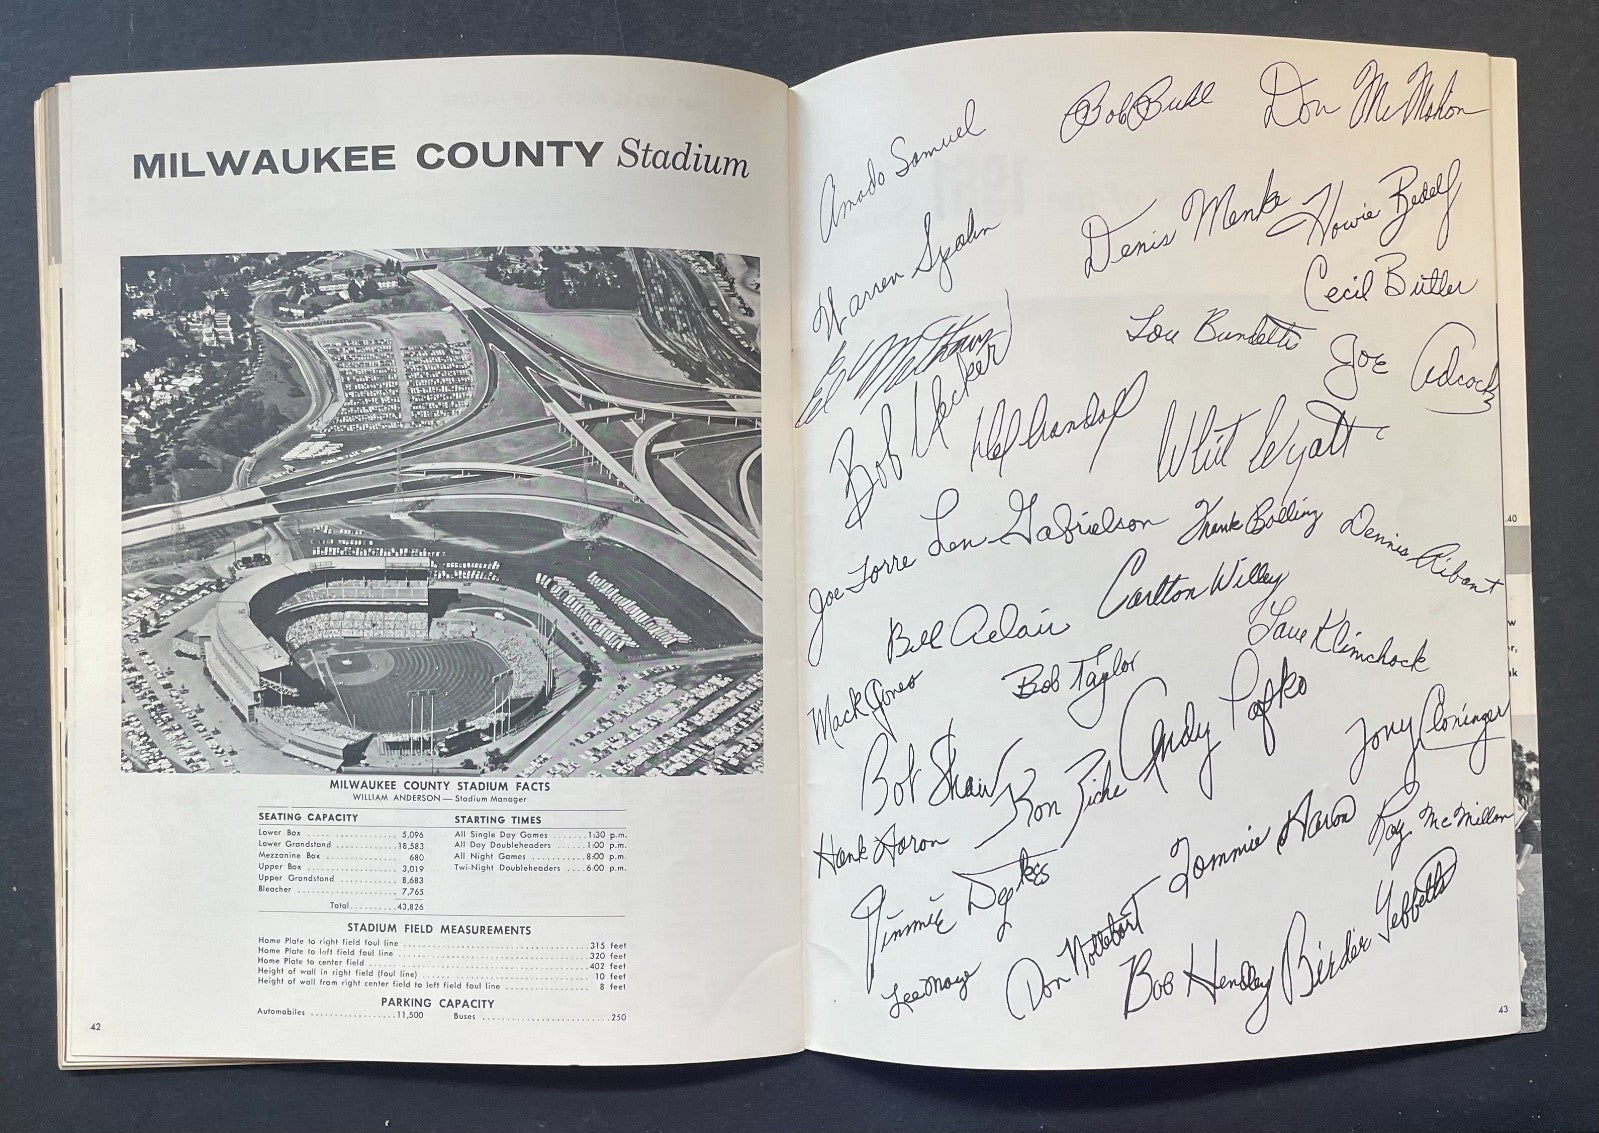 MILWAUKEE COUNTY Stadium
MILWAUKEE COUNTY STADIUM FACTS
WILLIAM ANDERSON — Stadium Manager
SEATING CAPACITY
Lower Box 5,096
Lower Grandstand 18,583
Mezzanine Box 680
Upper Box 3,019
Upper Grandstand 8,683
Bleacher 7,765
Total 43,826
STARTING TIMES
All Single Day Games 1:30 p.m.
All Day Doubleheaders 1:00 p.m.
All Night Games 8:00 p.m.
Twi-Night Doubleheaders 6:00 p.m.
STADIUM FIELD MEASUREMENTS
Home Plate to right field foul line 315 feet
Home Plate to left field foul line 320 feet
Home Plate to center field 402 feet
Height of wall in right field (foul line) 10 feet
Height of wall from right center field to left field foul line 8 feet
PARKING CAPACITY
Automobiles 11,500 Buses 250
42
Amado Samuel
Bob Buhl
Don McMahon
Warren Spahn
Denis Menke
Howie Bedell
Cecil Butler
Ed Mathews
Lou Burdette
Joe Adcock
Bob Uecker
Del Crandall
Whit Wyatt
Joe Torre
Len Gabrielson
Frank Bolling
Dennis Ribant
Bill Adair
Carlton Willey
Lou Klimchock
Mack Jones
Bob Taylor
Andy Pafko
Tony Cloninger
Bob Shaw
Ron Piche
Hank Aaron
Tommie Aaron
Roy McMillan
Jimmie Dykes
Lee Maye
Don Nottebart
Bob Hendley
Birdie Tebbetts
43
.40